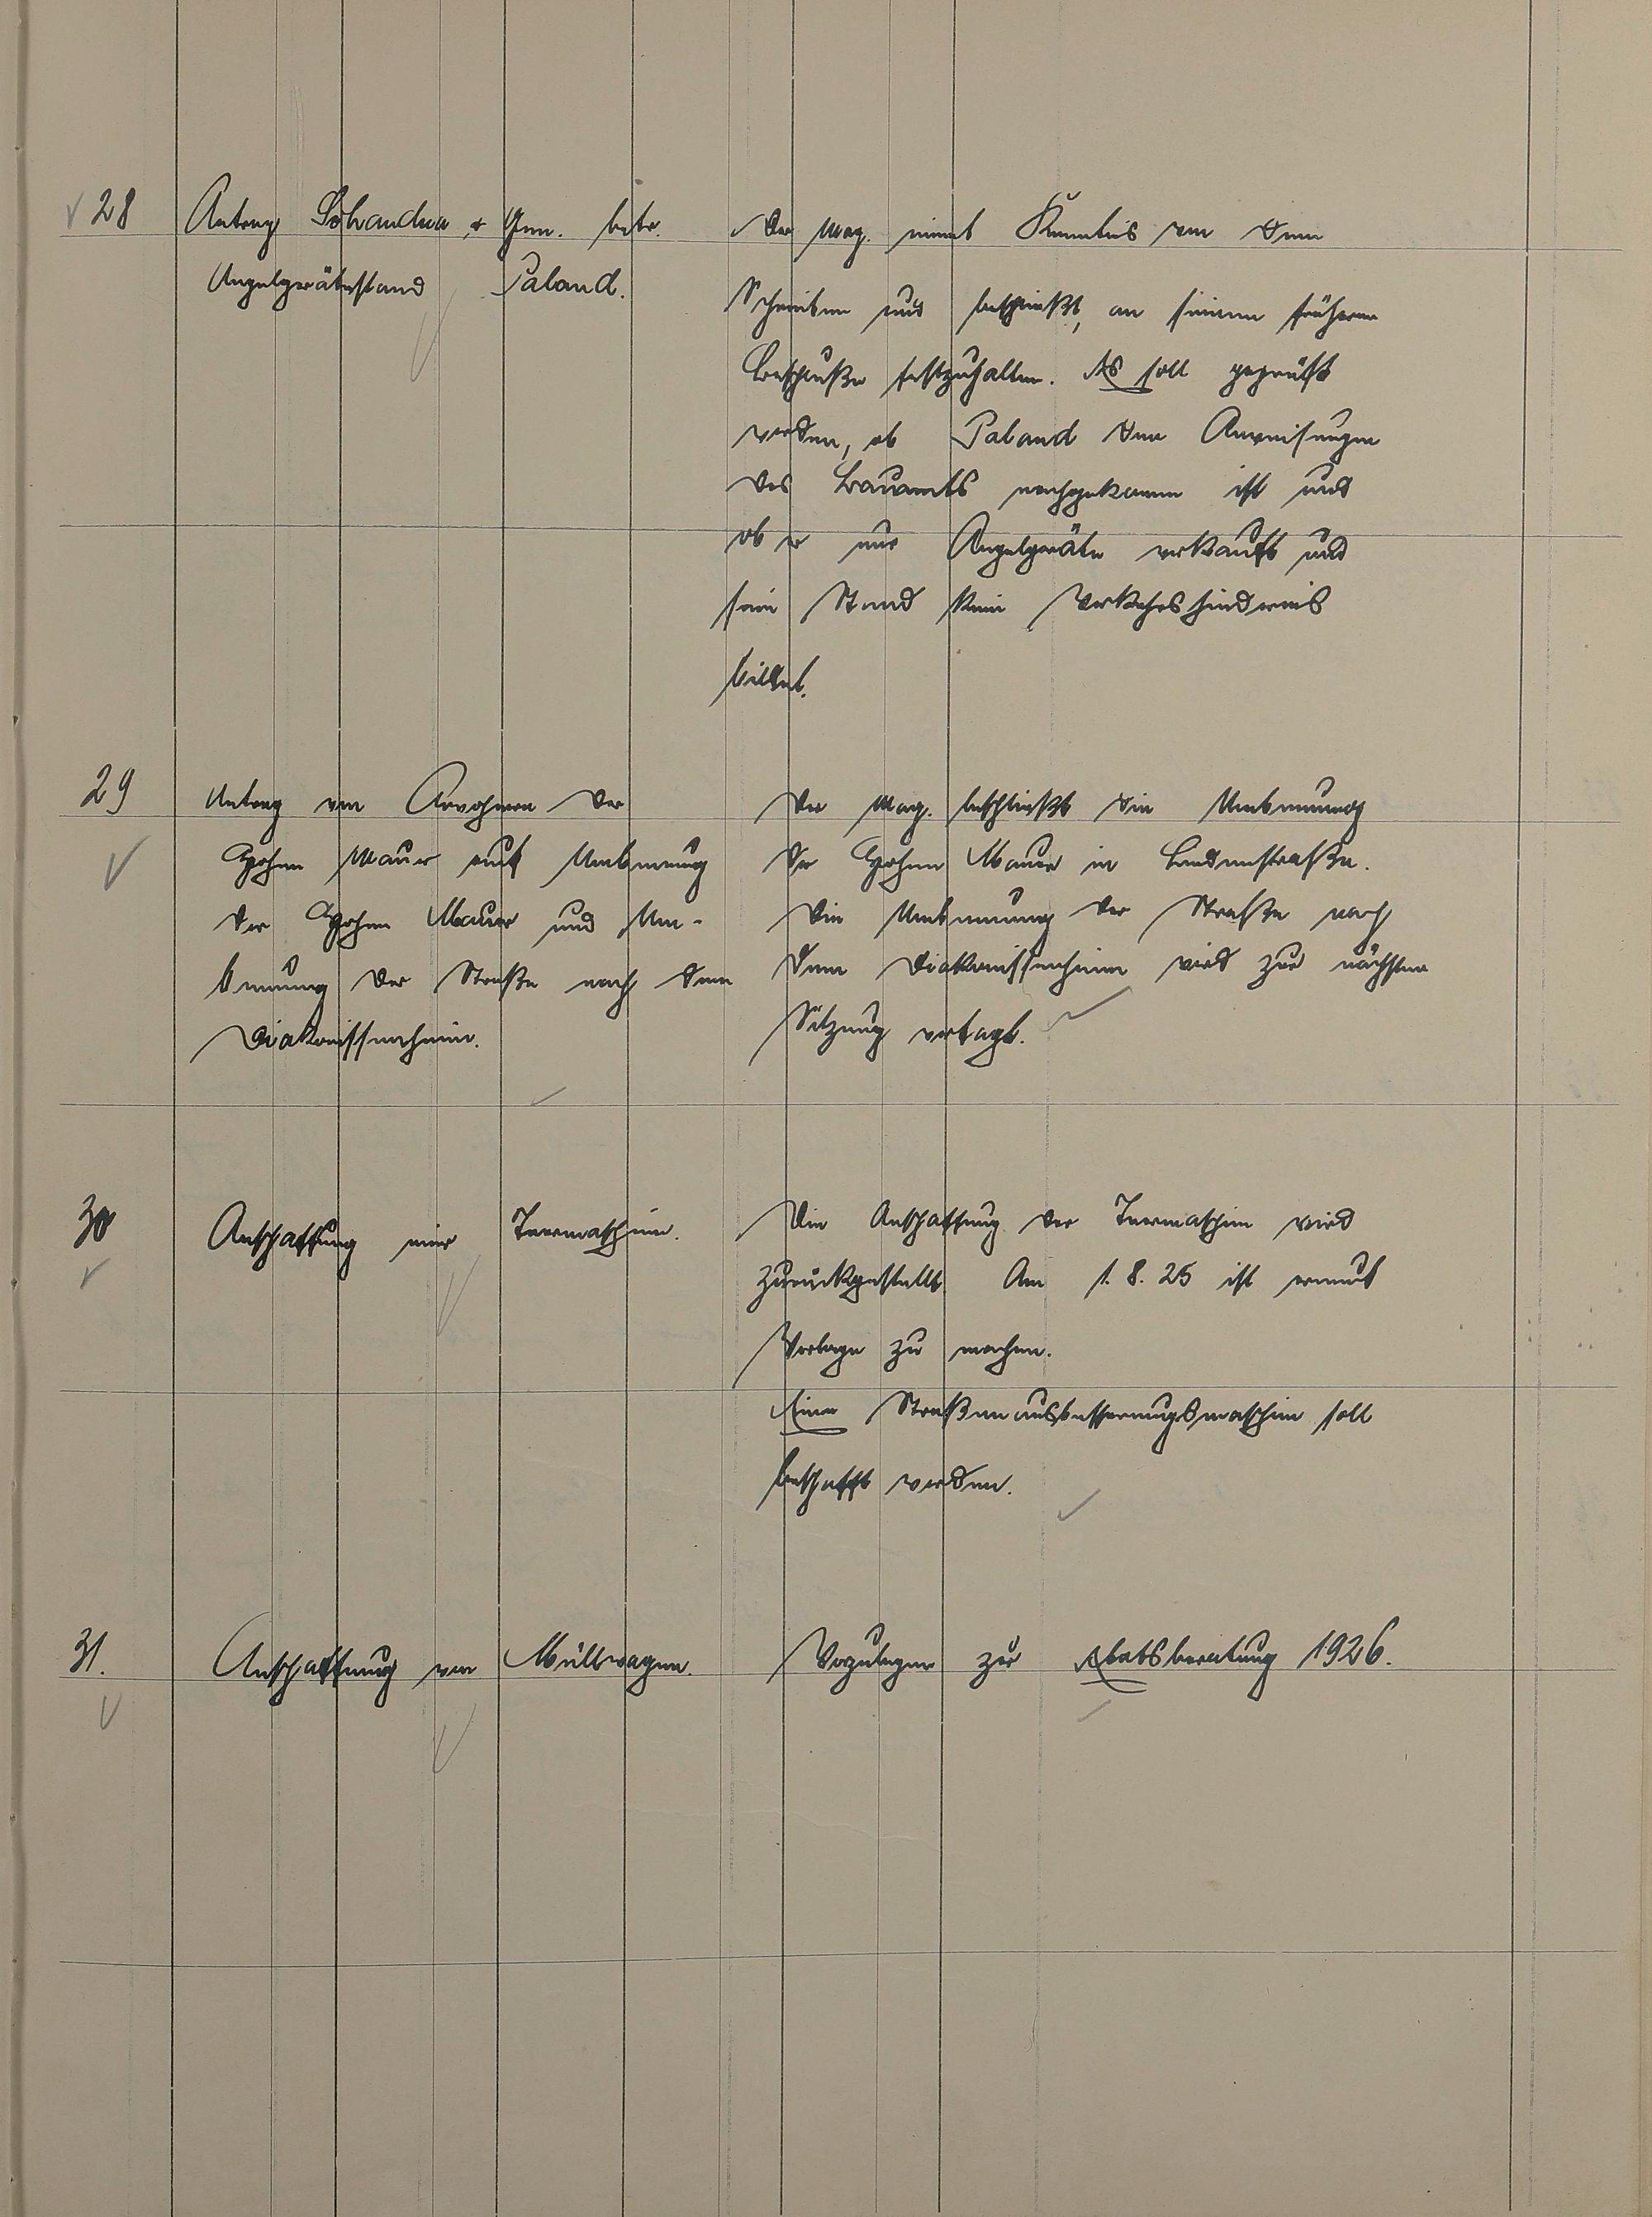 28 Antrag & Gen. betr.
Angelgerätestand Paland.
Der Mag. nimmt Kenntnis von dem
Schreiben und beschließt, an seinem früheren
Beschluße festzuhalten. Es soll geprüft
werden, ob Paland den Anweisungen
des Bauamts nachgekommen ist und
ob er nur Angelgeräte verkauft und
sein Stand kein Verkehrshindernis
bildet.
29 Antrag von Anwohnern der
Hohen Mauer auf Umbenennung
der Hohen Mauer und Um-
benennung der Straße nach dem
Diakonissenheim.
Der Mag. beschließt die Umbenennung
der Hohen Mauer in Lindenstraße.
Die Umbenennung der Straße nach
dem Diakonissenheim wird zur nächsten
Sitzung vertagt.
30 Anschaffung einer Teermaschine.
Die Anschaffung der Teermaschine wird
zurückgestellt. Am 1. 8. 25 ist erneut
Vorlage zu machen.
Eine Straßenausbesserungsmaschine soll
beschafft werden.
31. Anschaffung von Müllwagen.
Vorzulegen zur Etatsberatung 1926.